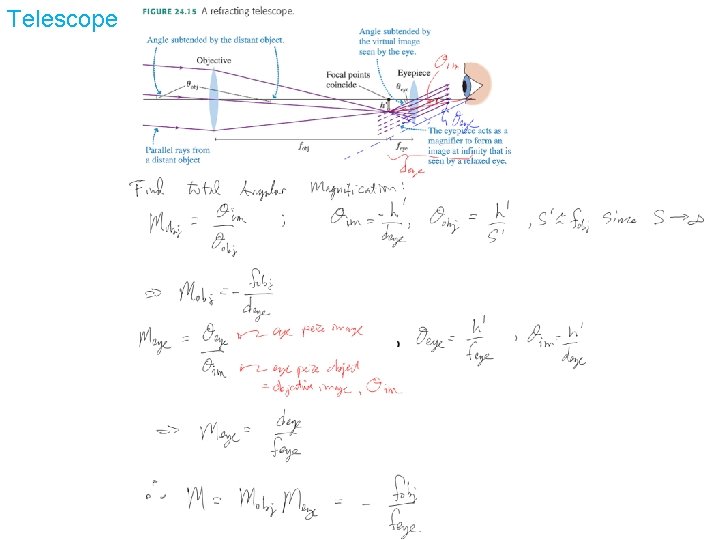 Telescope
FIGURE 24.15 A refracting telescope.
Angle subtended by the distant object.
Angle subtended by
the virtual image
seen by the eye.
θim
Objective
Focal points
coincide
Eyepiece
θobj
θeye
h'
h'
θeye
Parallel rays from
a distant object
fobj
feye
The eyepiece acts as a
magnifier to form an
image at infinity that is
seen by a relaxed eye.
deye
Find total Angular Magnification:
Mobj = θim / θobj ; θim = -h' / deye , θobj = h' / S' , S' ≈ fobj since S → ∞
⇒ Mobj = - fobj / deye
Meye = θeye / θim , θeye = h' / feye , θim = h' / deye
eye peice image
eye peice object
= objective image, θim
⇒ Meye = deye / feye
∴ M = Mobj Meye = - fobj / feye.